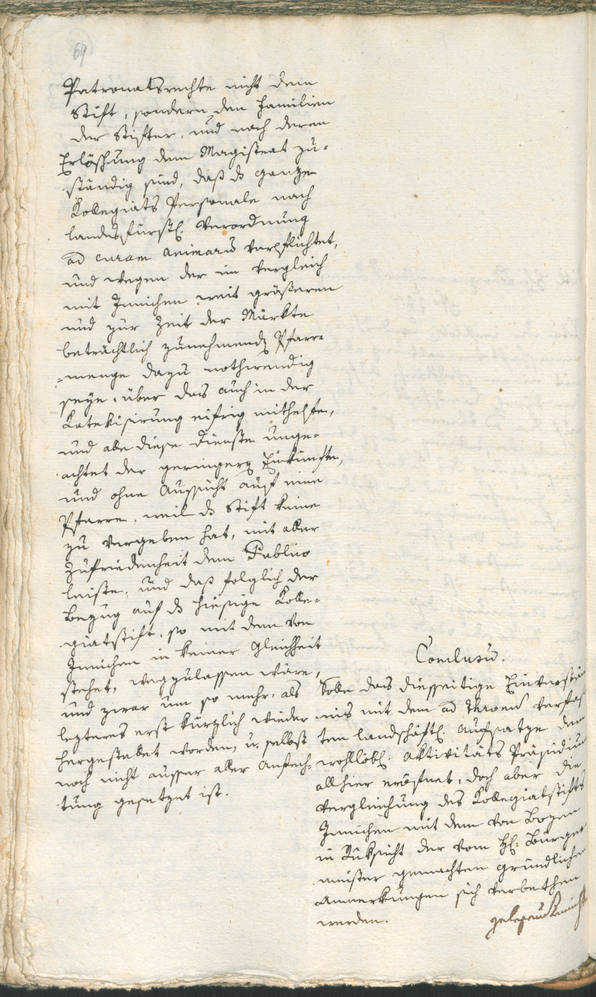 69
Patronatsrechte nicht dem
Stift, sondern den Familien
der Stifter, und nach deren
Erlöschung dem Magistrat zu-
ständig sind, daß ds ganze
Kollegiats Personale nach
landesfürstl. Verordnung
ad curam animarū verpflichtet,
und wegen der im Vergleich
mit Innichen weit größeren
und zur Zeit der Märkte
beträchtlich zunehmendē Pfarr-
menge dazu nothwendig
seye, über das auch in der
Katekisirung eifrig mithelfe,
und alle diese Dienste unge-
achtet der geringerē Einkünfte,
und ohne Aussicht auf eine
Pfarre, weil ds Stift keine
zu vergeben hat, mit aller
Zufriedenheit dem Publico
leiste, und daß folglich der
Bezug auf ds hiesige Colle-
giatstift, so mit dem von
Innichen in keiner Gleichheit
stehet, wegzulassen wäre,
und zwar um so mehr, als
lezteres erst kürzlich wieder
hergestellet worden, u. selbst
noch nicht ausser aller Anfech-
tung gesetzet ist.
Conclusū.
Solle das diesseitige Einverständ
nis mit dem ad thronū verfaß
ten landschäftl. Aufsatze dem
wohllöbl. Aktivitäts Präsidium
allhier eröfnet, doch aber die
Vergleichung des Collegiatstifts
Innichen mit dem von Bozen
in Rüksicht der vom H. Bürger
meister gemachten gründlichen
Anmerkungen sich verbethen
werden.